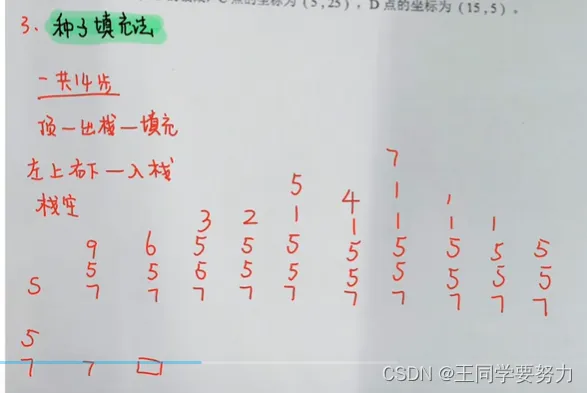 C 点的坐标为 (5,25), D 点的坐标为 (15,5)。
3. 种子填充法
一共14步
顶一出栈一填充
左上右下一入栈
栈空
7
5 1
4 1
3 2 1 1 1 1 1
9 6 5 5 5 5 5 5 5 5
5 5 5 5 5 5 5 5 5 5
5 7 7 7 7 7 7 7 7 7 7
5
7 7 □
CSDN @王同学要努力